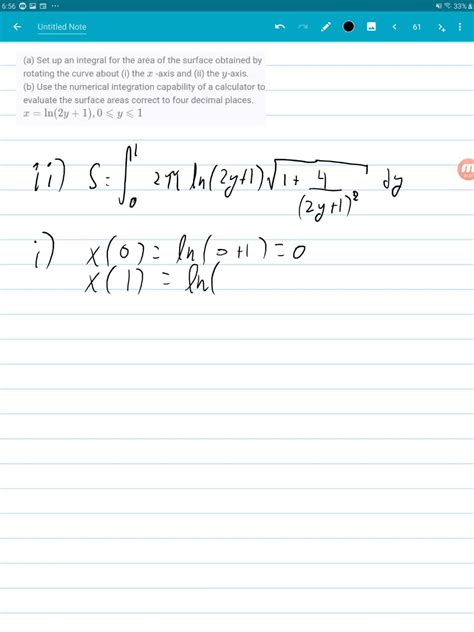 6:56 33%
Untitled Note 61
(a) Set up an integral for the area of the surface obtained by
rotating the curve about (i) the x -axis and (ii) the y-axis.
(b) Use the numerical integration capability of a calculator to
evaluate the surface areas correct to four decimal places.
x = ln(2y + 1), 0 ⩽ y ⩽ 1
ii) S = ∫₀¹ 2π ln(2y+1) √(1 + 4/(2y+1)²) dy
i) x(0) = ln(0+1) = 0
x(1) = ln(